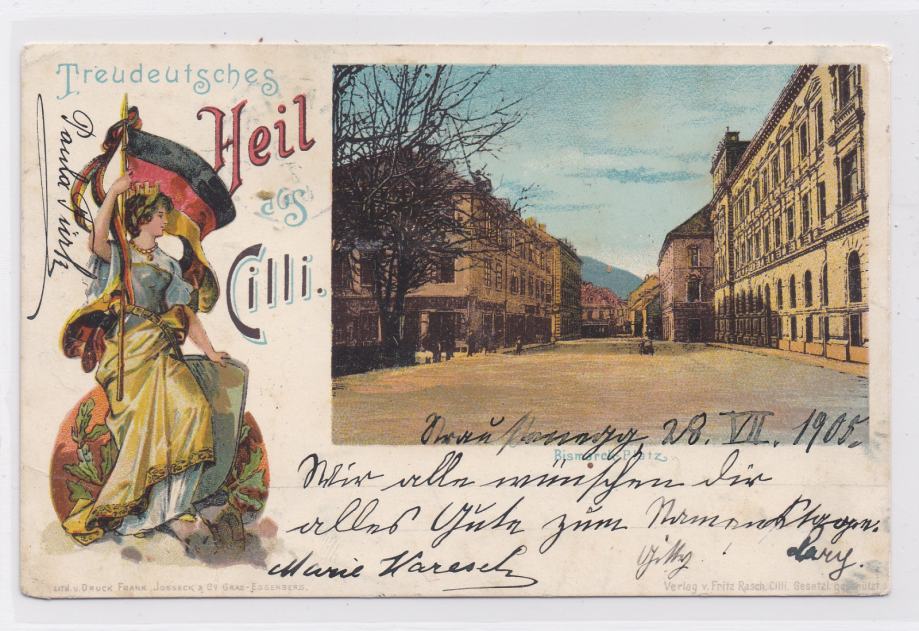 Treudeutsches
Heil
aus
Cilli.
Paula
Straussenegg, 28. VII. 1905.
Bismarck-Platz.
Wir alle wünschen dir
alles Gute zum Namenstage.
Marie Karesch
Gitty!
Lith. u. Druck Frank, Josseck & Co Graz-Eggenberg.
Verlag v. Fritz Rasch, Cilli. Gesetzl. geschützt